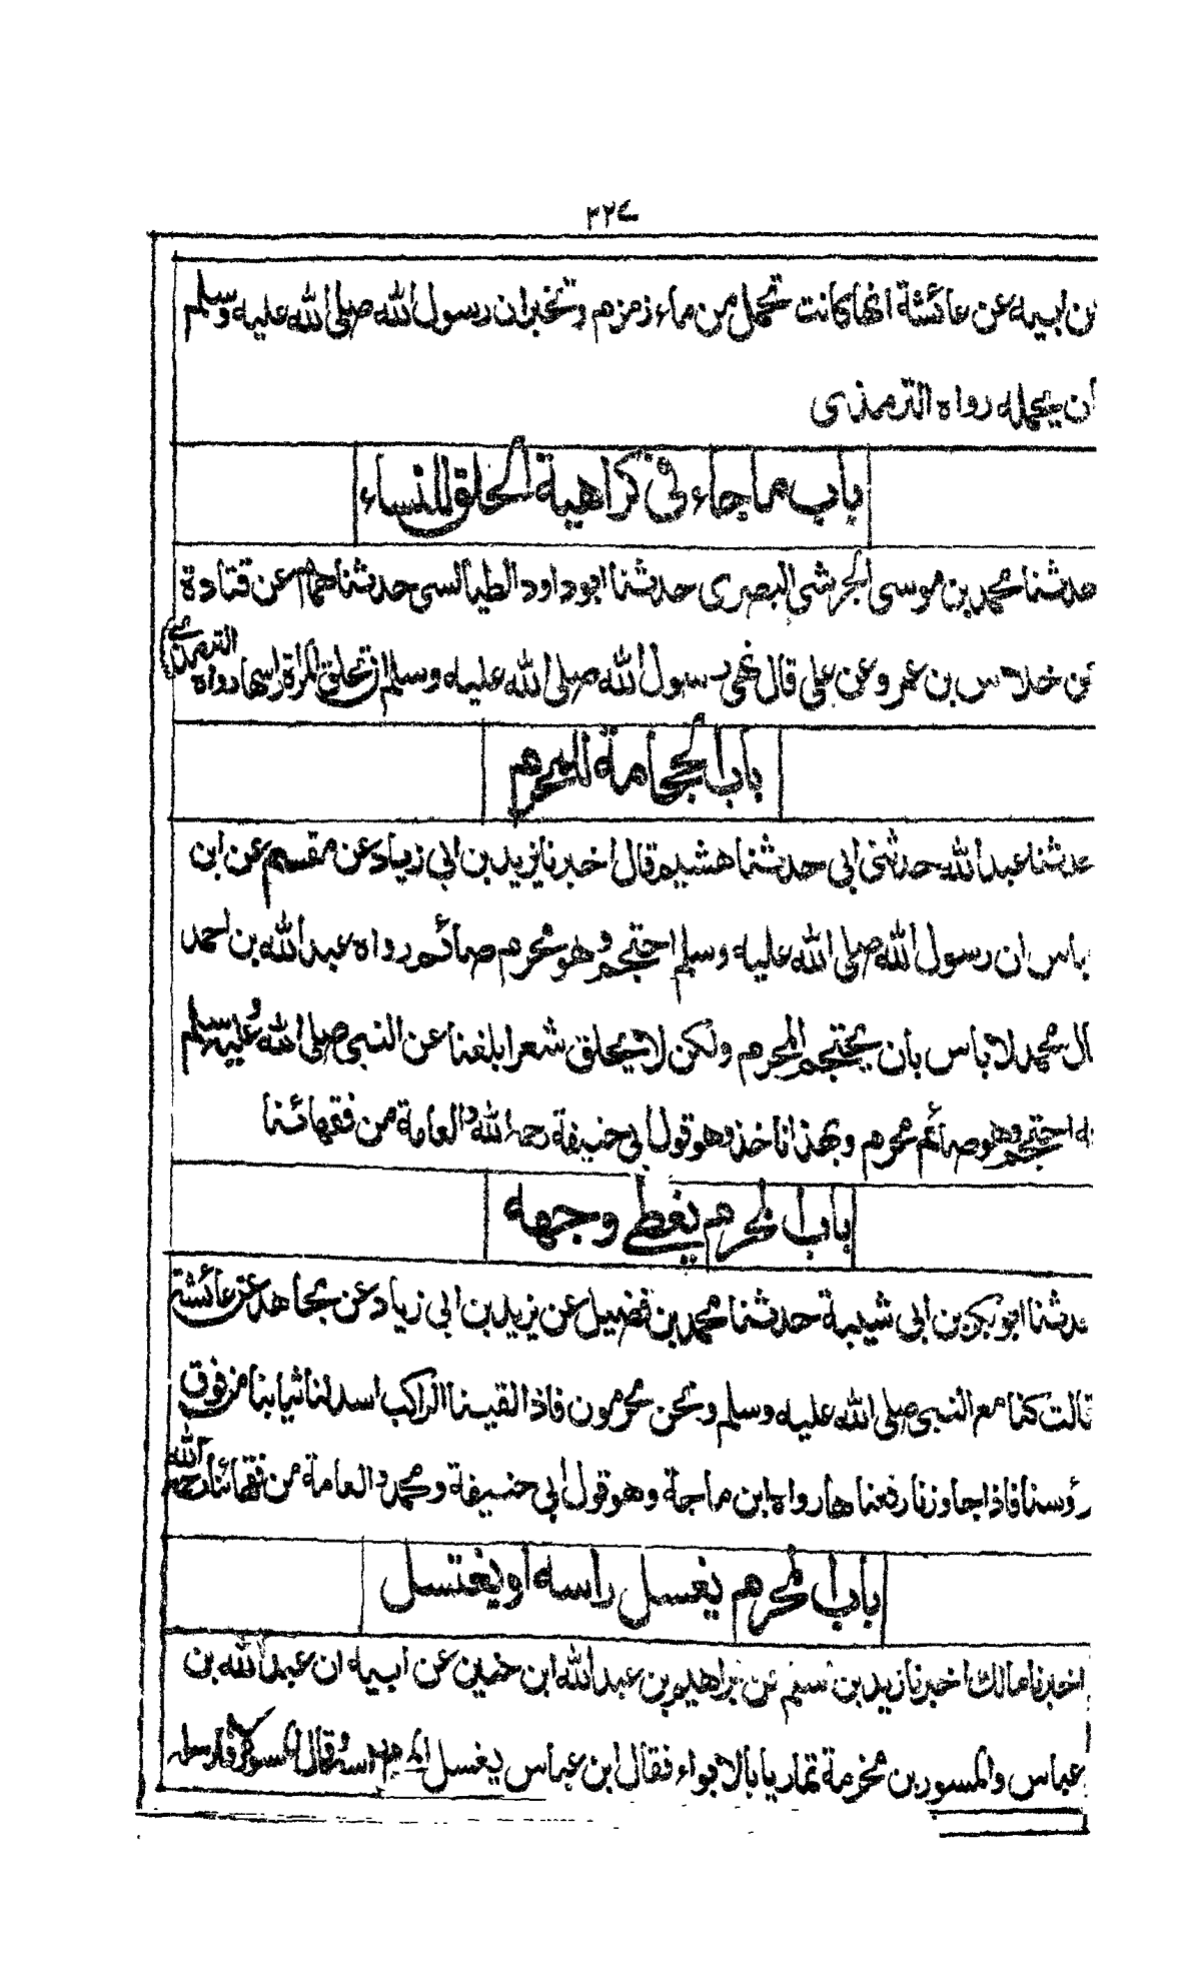 ٣٢٤
عن ابيه عن عائشة انها كانت تحمل من ماء زمزم وتخبر ان رسول الله صلى الله عليه وسلم
كان يحمله رواه الترمذى
باب ما جاء فى كراهية الحلق للنساء
حدثنا محمد بن موسى الجرشى البصرى حدثنا ابو داود الطيالسى حدثنا همام عن قتادة
عن خلاس بن عمرو عن على قال نهى رسول الله صلى الله عليه وسلم ان تحلق المرأة راسها رواه الترمذى
باب الحجامة للمحرم
حدثنا عبد الله حدثنى ابى حدثنا هشيم قال اخبرنا يزيد بن ابى زياد عن مقسم عن ابن
عباس ان رسول الله صلى الله عليه وسلم احتجم وهو محرم صائم رواه عبد الله بن احمد
قال محمد لا باس بان يحتجم المحرم ولكن لا يحلق شعرا بلغنا عن النبى صلى الله عليه وسلم
انه احتجم وهو صائم محرم وبهذا ناخذ وهو قول ابى حنيفة رحمه الله والعامة من فقهائنا
باب المحرم يغطى وجهه
حدثنا ابو بكر بن ابى شيبة حدثنا محمد بن فضيل عن يزيد بن ابى زياد عن مجاهد عن عائشة
قالت كنا مع النبى صلى الله عليه وسلم ونحن محرمون فاذا لقينا الراكب اسدلنا ثيابنا من فوق
رؤسنا فاذا جاوزنا رفعناها رواه ابن ماجة وهو قول ابى حنيفة ومحمد والعامة من فقهائنا رحمهم الله
باب المحرم يغسل راسه او يغتسل
اخبرنا مالك اخبرنا زيد بن اسلم عن ابراهيم بن عبد الله ابن حنين عن ابيه ان عبد الله بن
عباس والمسور بن مخرمة تماريا بالابواء فقال ابن عباس يغسل المحرم راسه وقال المسور لا فارسله